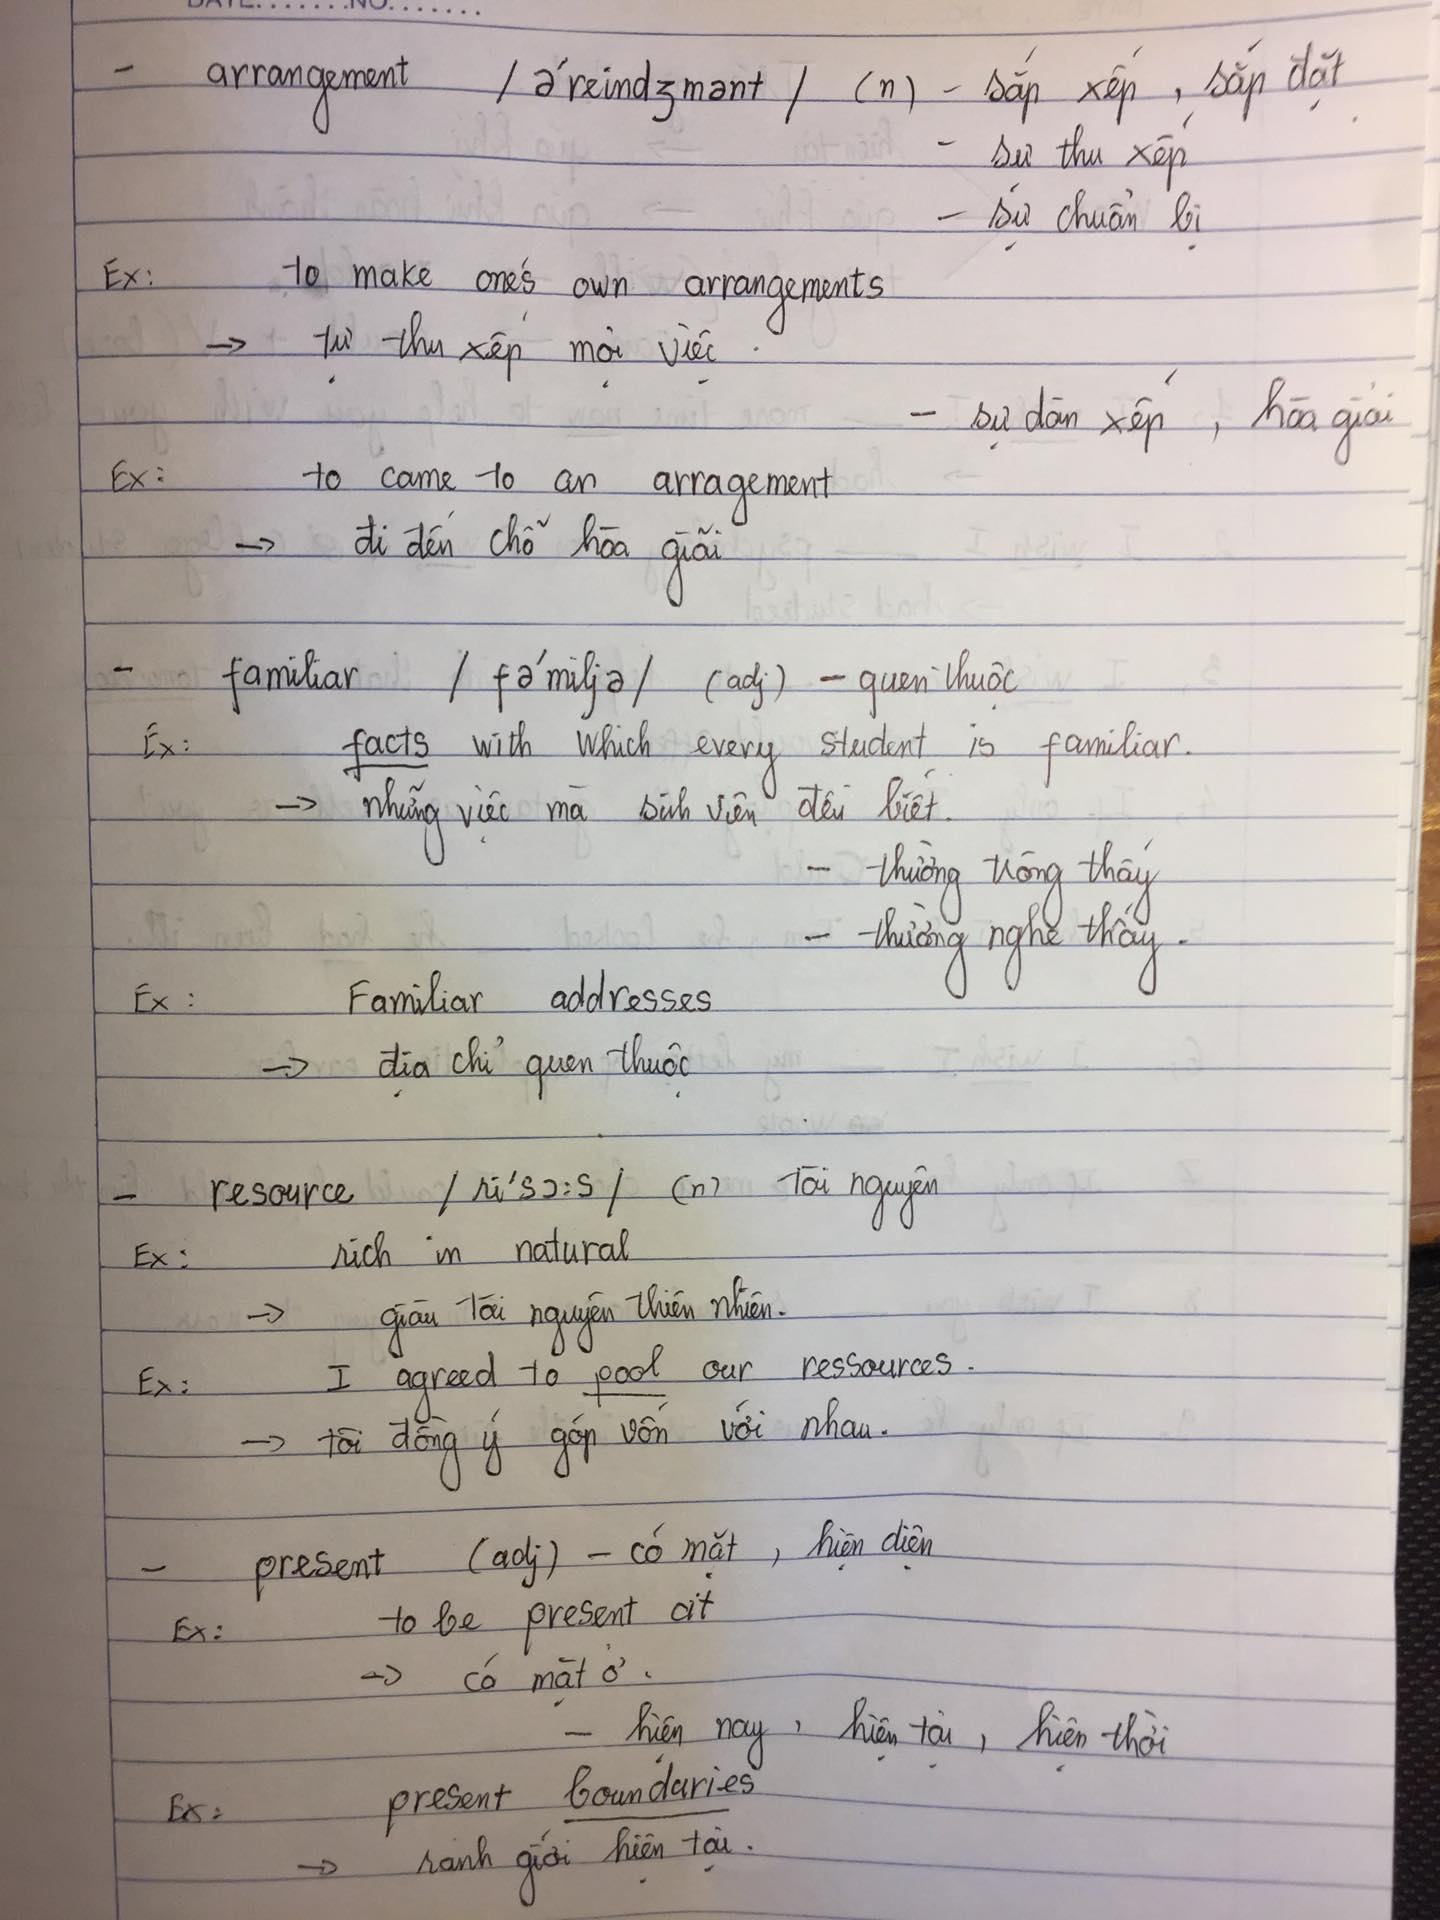 DATE.......NO.......
- arrangement /ə'reindʒmənt/ (n) - sắp xếp, sắp đặt
- sự thu xếp
- sự chuẩn bị
Ex: to make one's own arrangements
→ tự thu xếp mọi việc.
- sự dàn xếp, hòa giải
Ex: to came to an arragement
→ đi đến chỗ hòa giãi
- familiar /fə'miljə/ (adj) - quen thuộc
Ex: facts with which every student is familiar.
→ những việc mà sinh viên đều biết.
- thường trông thấy
- thường nghe thấy.
Ex: Familiar addresses
→ địa chỉ quen thuộc
- resource /ri'sɔ:s/ (n) tài nguyên
Ex: rich in natural
→ giàu tài nguyên thiên nhiên.
Ex: I agreed to pool our ressources.
→ tôi đồng ý góp vốn với nhau.
- present (adj) - có mặt, hiện diện
Ex: to be present at
→ có mặt ở.
- hiện nay, hiện tại, hiện thời
Ex: present boundaries
→ ranh giới hiện tại.